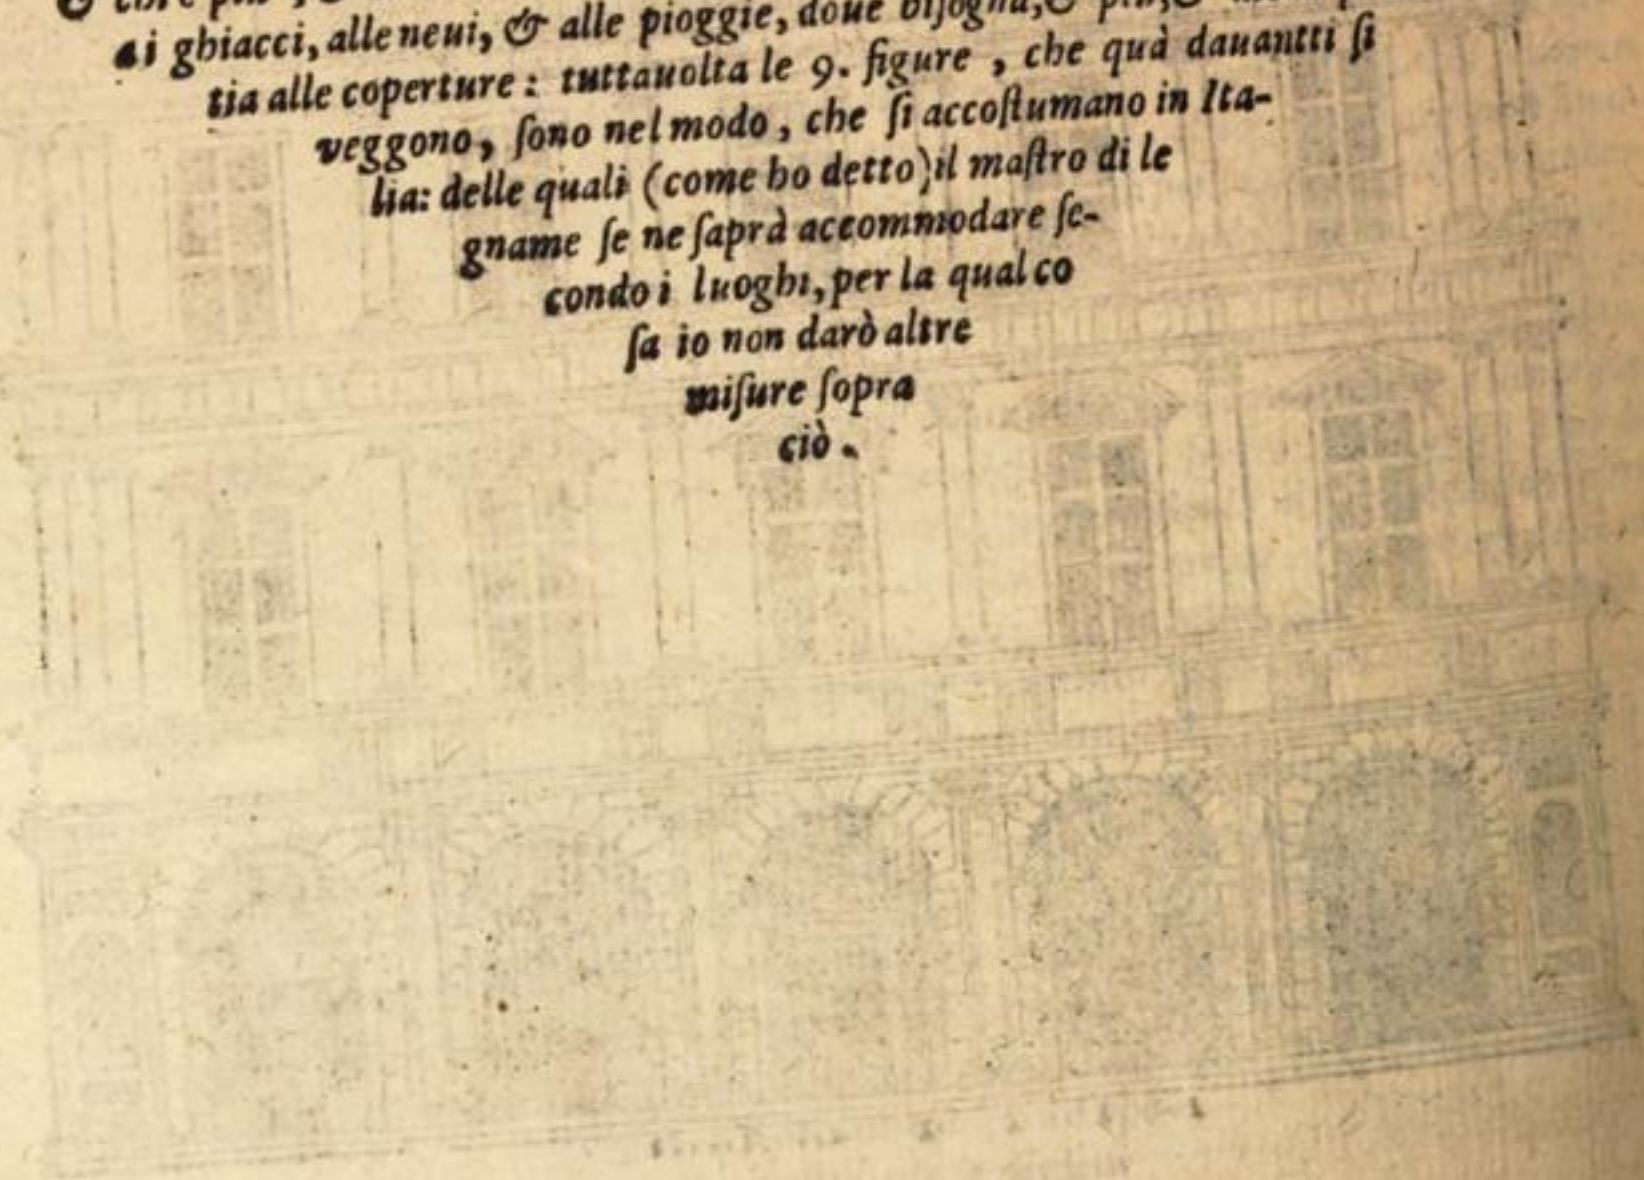 ai ghiacci, alle neui, & alle pioggie, doue bisogna, &
tia alle coperture: tuttauolta le 9. figure, che quà dauantti ſi
veggono, ſono nel modo, che ſi accoſtumano in Ita-
lia: delle quali (come ho detto) il maſtro di le
gname ſe ne ſaprà accommodare ſe-
condo i luoghi, per la qual co
ſa io non darò altre
miſure ſopra
ciò.